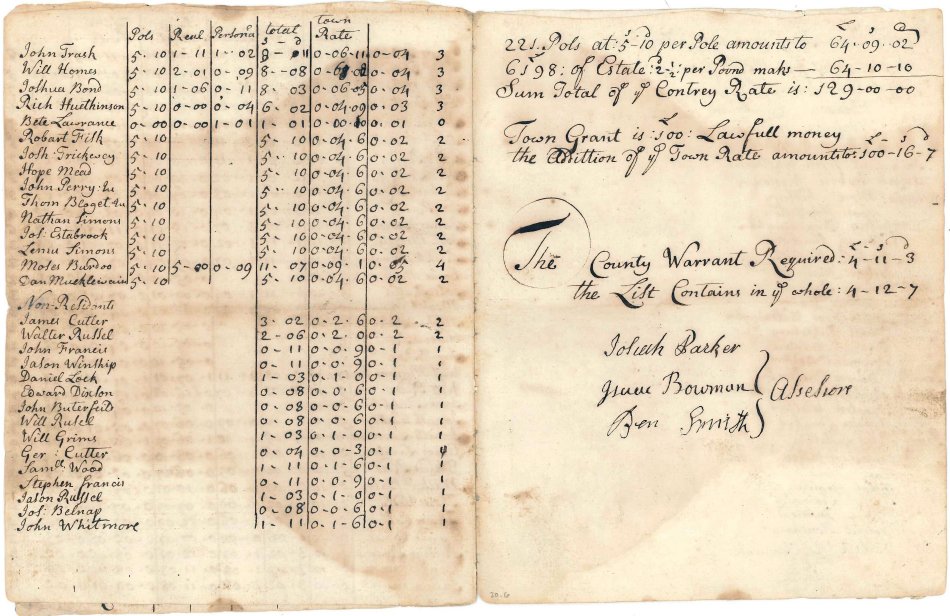 Pols Real Persona total town Rate
John Trask 5-10 1-11 1-02 8-11 0-06-11 0-04 3
Will Homes 5-10 2-01 0-09 8-08 0-04 3
Joshua Bond 5-10 1-06 0-11 8-03 0-06-05 0-04 3
Rich Huthinson 5-10 0-00 0-04 6-02 0-04-09 0-03 3
Bele Lawrance 0-0 0-00 1-01 1-01 0-01 0
Robart Fisk 5-10 5-10 0-04-6 0-02 2
Josh Trickewey 5-10 5-10 0-04-6 0-02 2
Hope Mead 5-10 5-10 0-04-6 0-02 2
John Perry: 5-10 5-10 0-04-6 0-02 2
Thom Bloget 5-10 5-10 0-04-6 0-02 2
Nathan Simons 5-10 5-10 0-04-6 0-02 2
Jos: Estabrook 5-10 5-10 0-04-6 0-02 2
Lemu Simons 5-10 5-10 0-04-6 0-02 2
Moses Burdoo 5-10 5-00 0-09 11-07 0-05 4
Dan Mucklewain 5-10 5-10 0-04-6 0-02 2
Non-Residents
James Cutler 3-02 0-2-6 0-2 2
Walter Russel 2-06 0-2-0 0-2 2
John Francis 0-11 0-0-9 0-1 1
Jason Winship 0-11 0-0-9 0-1 1
Daniel Lock 1-03 0-1-0 0-1 1
Edward Dinson 0-08 0-0-6 0-1 1
John Buterfeild 0-08 0-0-6 0-1 1
Will Rusel 0-08 0-0-6 0-1 1
Will Grims 1-03 0-1-0 0-1 1
Ger: Cutter 0-04 0-0-3 0-1
Samll Wood 1-11 0-1-6 0-1 1
Stephen Francis 0-11 0-0-9 0-1 1
Jason Russel 1-03 0-1-0 0-1 1
Jos: Belnap 0-08 0-0-6 0-1 1
John Whitmore 1-11 0-1-6 0-1 1
£ s d
221 Pols at: 5-10 per Pole amounts to 64-09-02
6198: of Estate: 2½: per Pound maks — 64-10-10
Sum Total of ye Contrey Rate is: 129-00-00
Town Grant is: 100: Lawfull money £ s d
the Adittion of ye Town Rate amounts to: 100-16-7
£ s d
The County Warrant Required: 4-11-3
the List Contains in ye whole: 4-12-7
Josiah Parker
Isaac Bowman } Assessors
Ben Smith
20-6